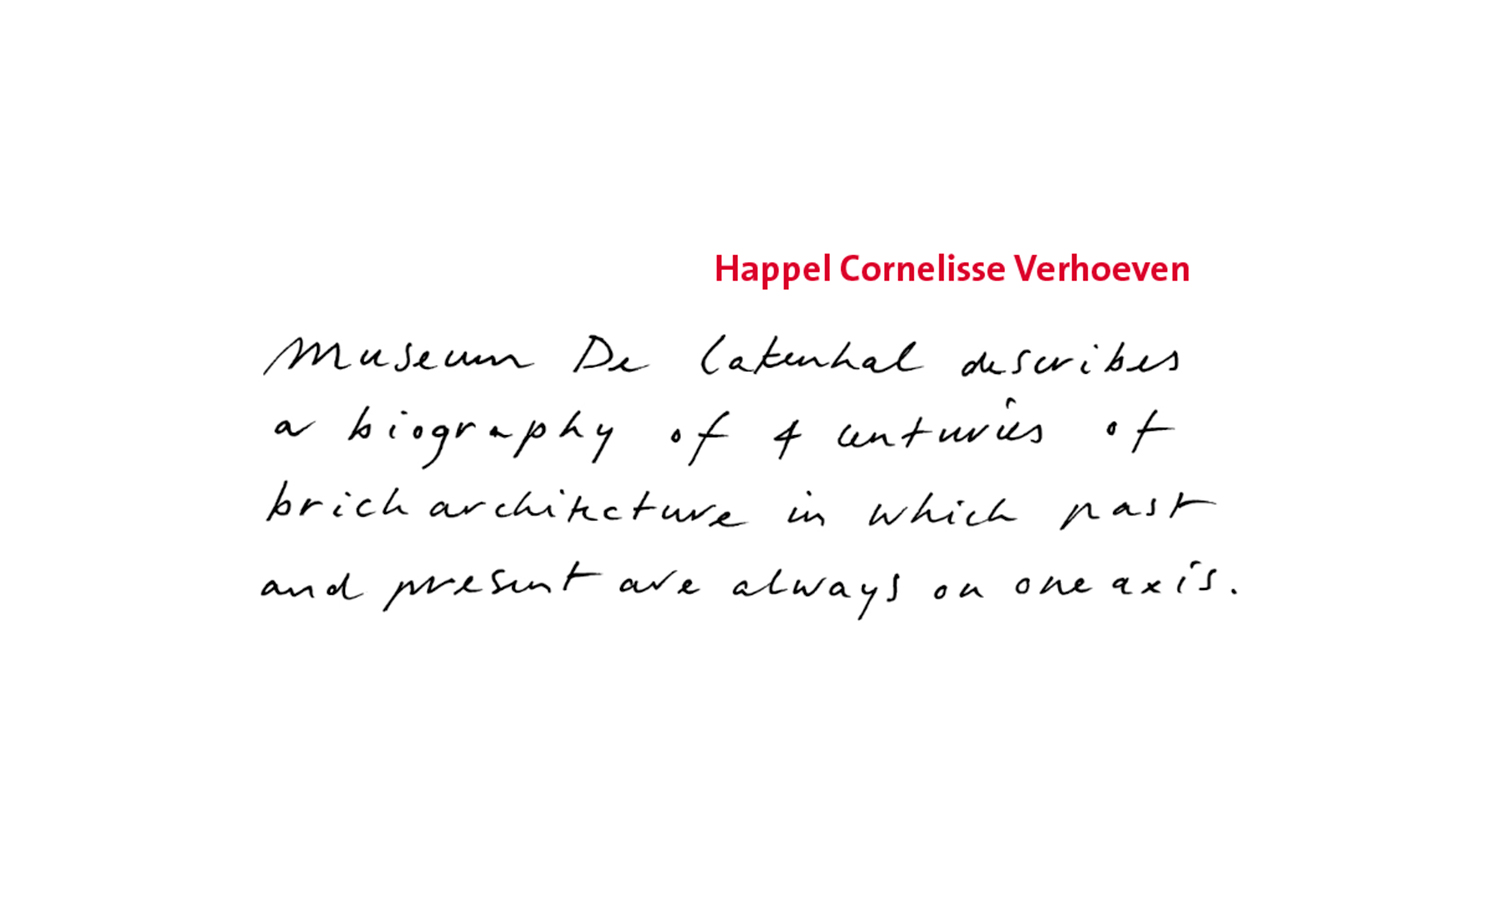 Happel Cornelisse Verhoeven
Museum De Lakenhal describes
a biography of 4 centuries of
brick architecture in which past
and present are always on one axis.